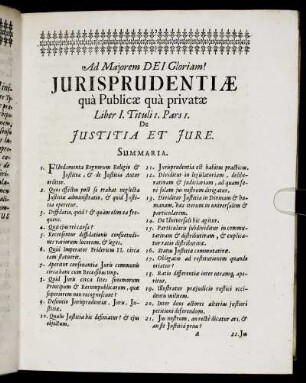 Ad Majorem DEI Gloriam!
JURISPRUDENTIÆ
quà Publicæ quà privatæ
Liber I. Tituli 1. Pars 1.
De
JUSTITIA ET JURE.
SUMMARIA.
1. Fundamenta Regnorum Religio &
Justitia, & de Justitia Autor
2. Quos effectus post se trahat neglecta
Justitiæ administratio, & quid Justi-
tia operetur.
3. Diffidatio, quid? & quàm olim ea fre-
quens.
4. Quæ ejus causa?
5. Recensentur diffidationis consuetudi-
nes variorum locorum, & leges.
6. Quid imperator Fridericus II. circa
eam statuerit.
7. Aperitur consonantia Juris communis
circa hanc cum Recessibus Imp.
8. Quid Juris circa lites summorum
Principum & Rerumpublicarum, quæ
superiorem non recognoscunt?
9. Definitio Jurisprudentiæ, Juris, Ju-
stitiæ.
10. Qualis Justitia hic definiatur? & ejus
objectum.
11. Jurisprudentia est habitus practicus.
12. Dividitur in legislatoriam, delibe-
rativam & judiciariam, ad quam fo-
13. Dividitur Justitia in Divinam & hu-
manam, hæc iterum in universalem &
particularem.
14. De Universali hic agitur.
15. Particularis subdividitur in commu-
tativam & distributivam, & explica-
tur earum distributiva.
16. Item Justitia commutativa.
17. Obligatio ad restitutionem quando
oriatur?
18. Ratio differentiæ inter utramq, ape-
ritur.
19. Illustratur præjudicio restitui occi-
dentis militem.
20. Inter duos actores alterius justiori
petitioni deferendum.
21. Jus nostrum, an rectè dicatur ars, &
an sit Justitiâ prius?
A
22. Jus